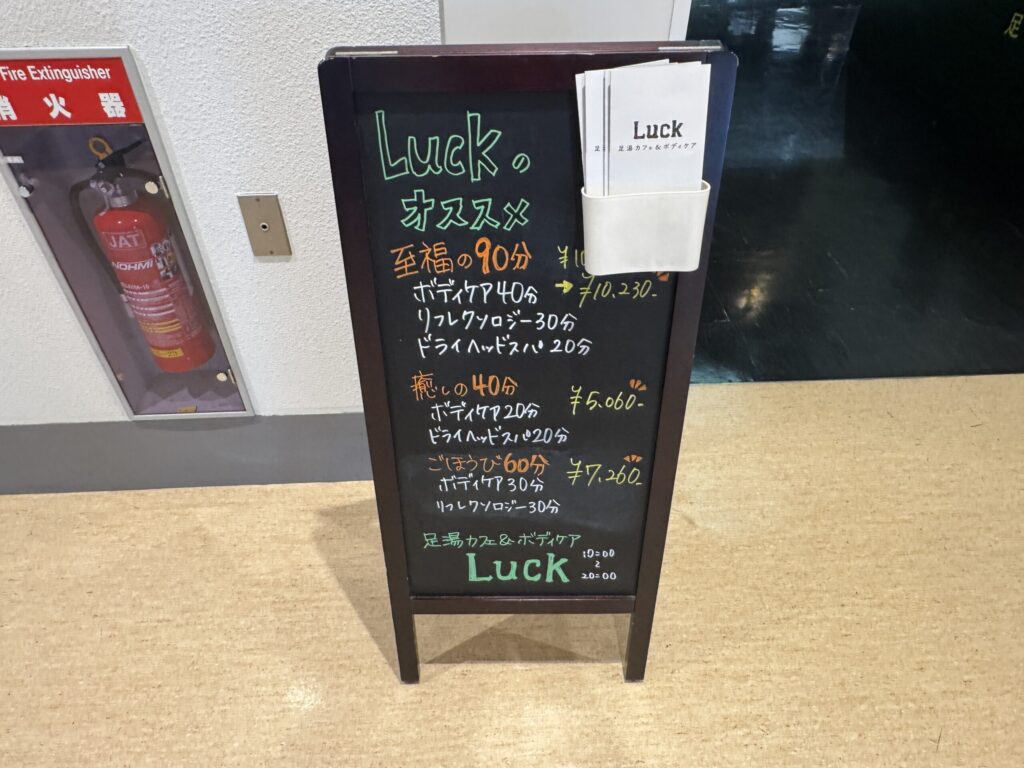 Fire Extinguisher
消火器
JAT
NOHMI
Luck
足湯カフェ&ボディケア
Luckの
オススメ
至福の90分 ¥10
ボディケア40分 →¥10,230-
リフレクソロジー30分
ドライヘッドスパ20分
癒しの40分
ボディケア20分 ¥5,060-
ドライヘッドスパ20分
ごほうび60分 ¥7,260-
ボディケア30分
リフレクソロジー30分
足湯カフェ&ボディケア
Luck 10:00
~
20:00
足